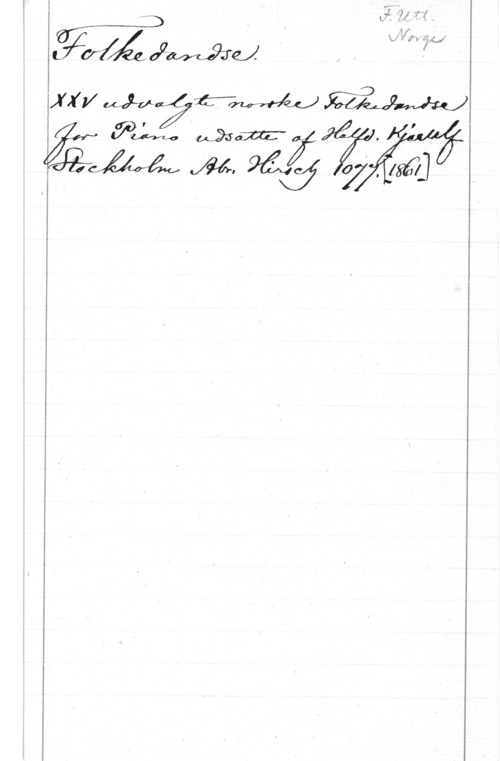 F. Utl.
Norge
Folkedandse.
XXV udvalgte norske Folkedandse
for Piano udsatte af Halfd. Kjerulf
Stockholm Abr. Hirsch 1077. [1861]